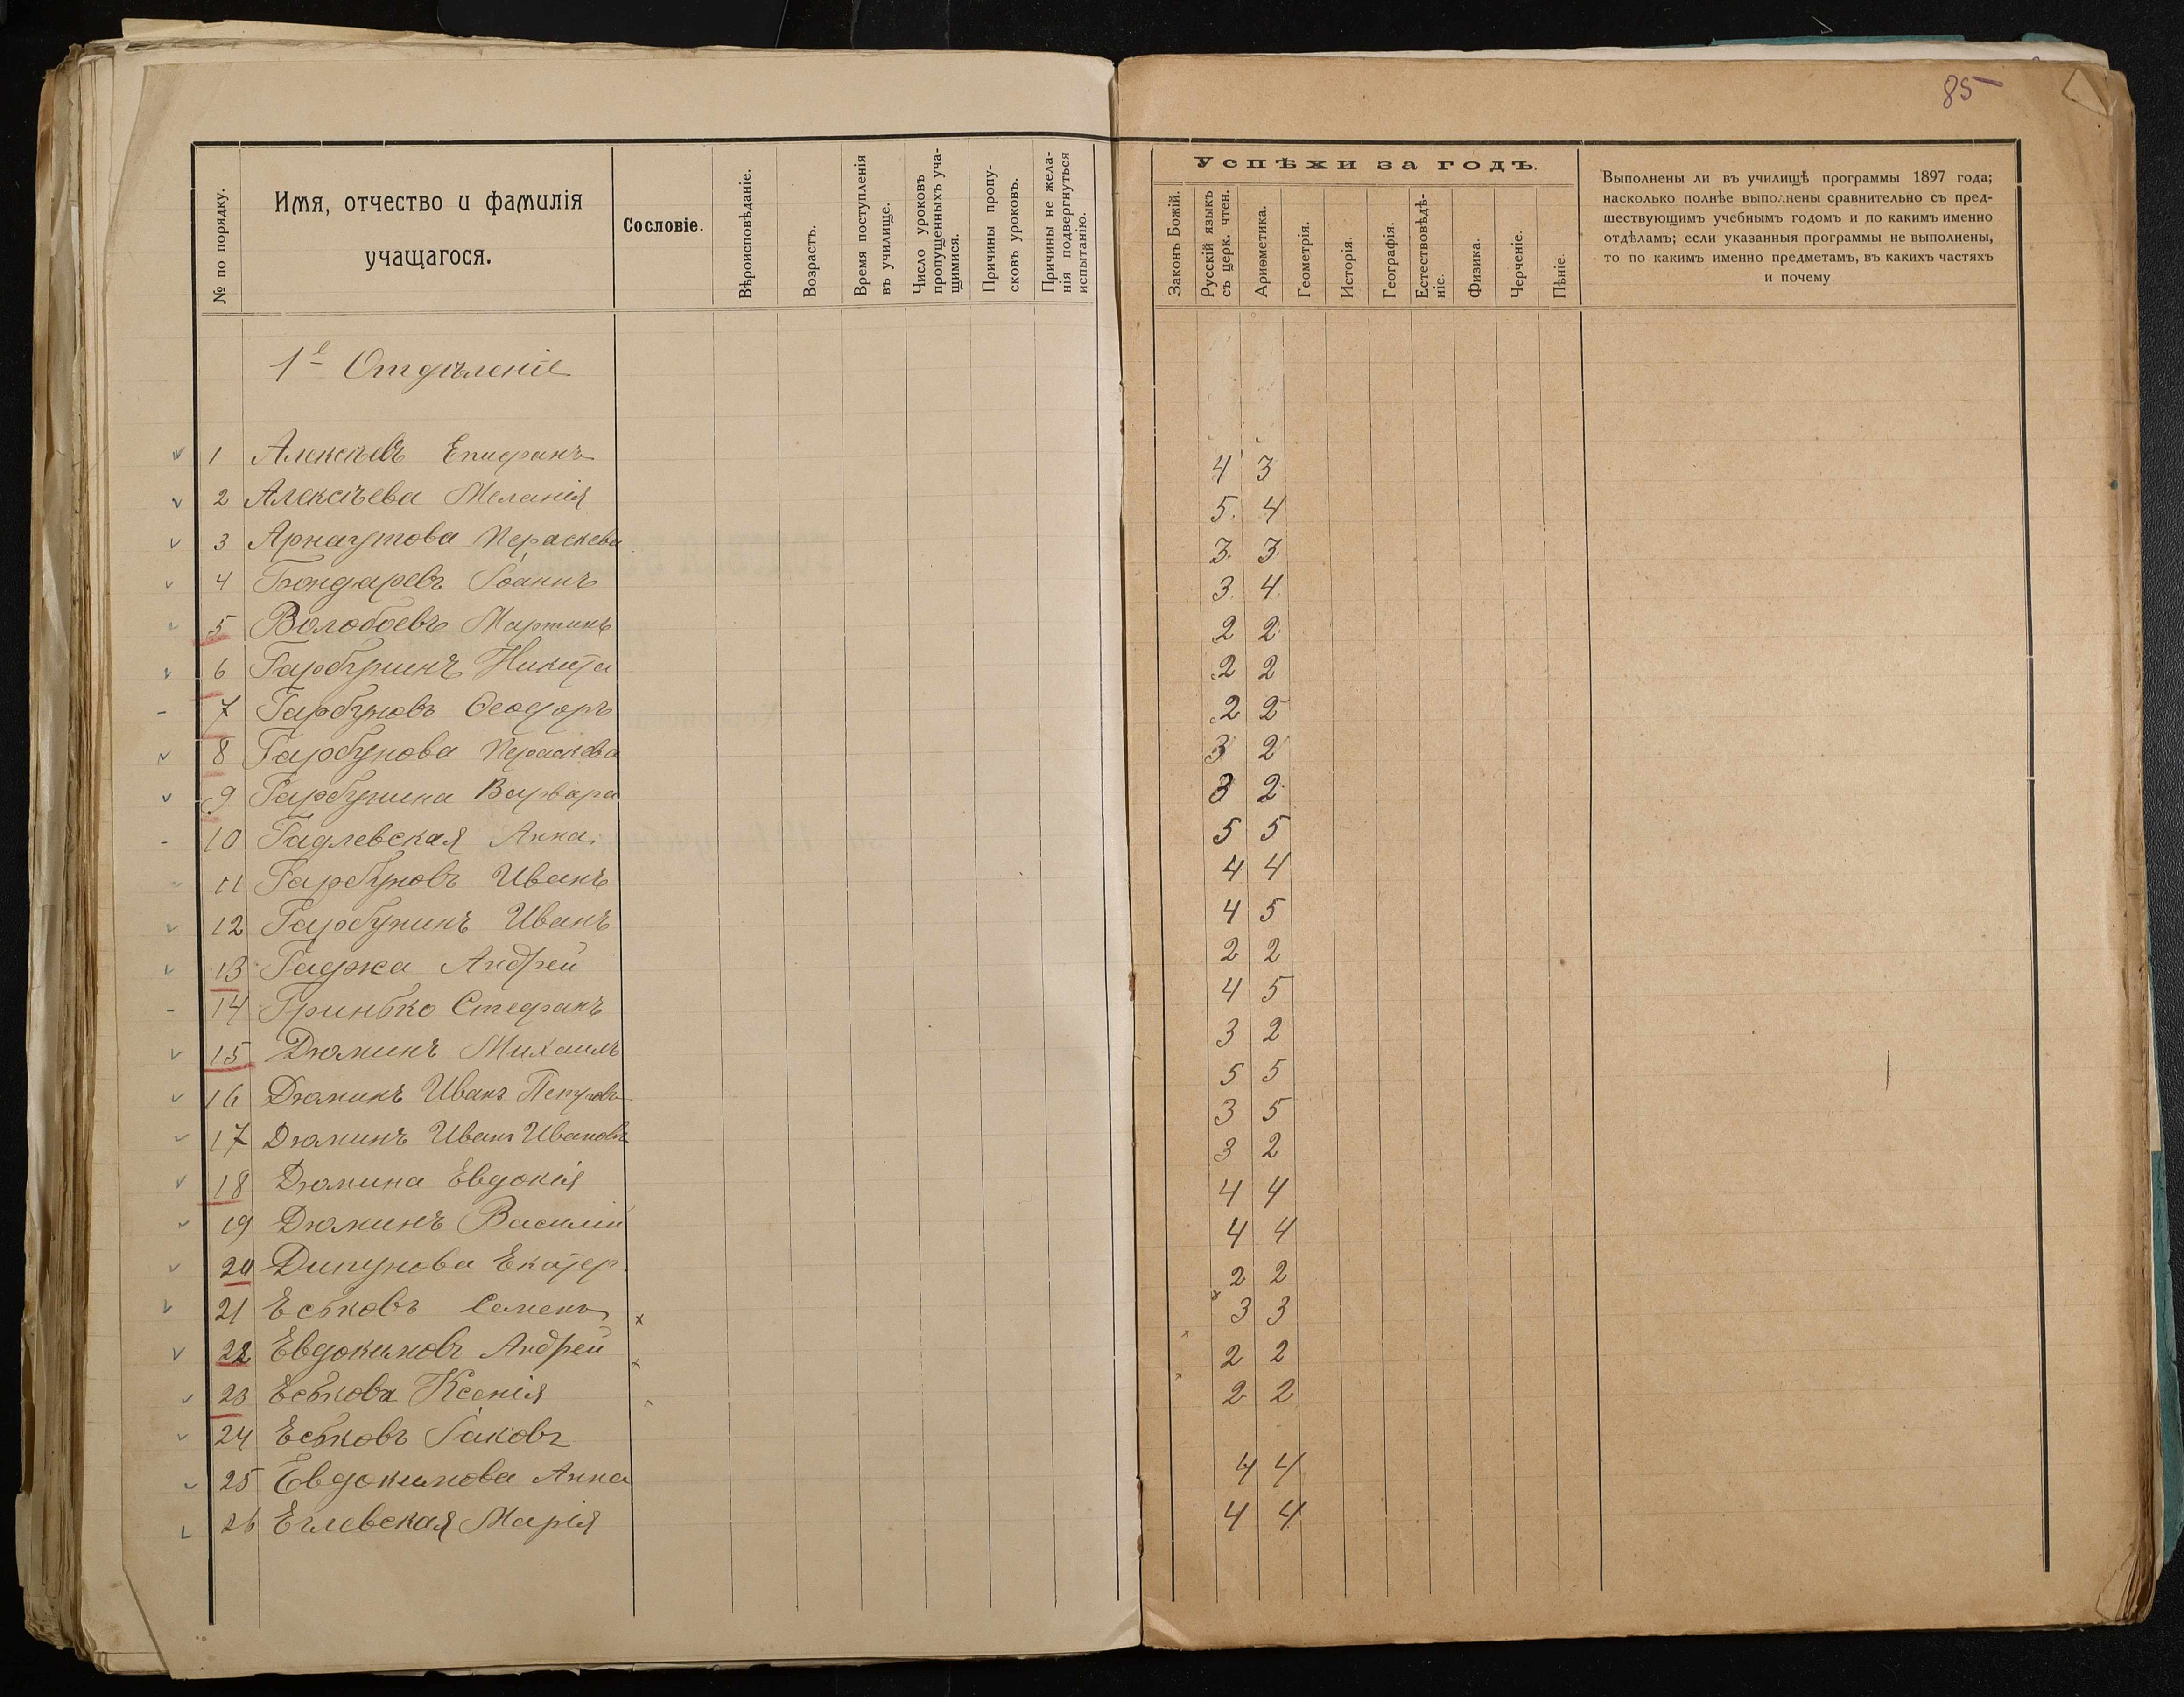 85
№ по порядку.
Имя, отчество и фамилія
учащагося.
Сословіе.
Вѣроисповѣданіе.
Возрастъ.
Время поступленія
въ училище.
Число уроковъ
пропущенныхъ уча-
щимися.
Причины пропу-
сковъ уроковъ.
Причины не жела-
нія подвергнуться
испытанію.
Успѣхи за годъ.
Законъ Божій.
Русскій языкъ
съ церк. чтен.
Ариѳметика.
Геометрія.
Исторія.
Географія.
Естествовѣдѣ-
ніе.
Физика.
Черченіе.
Пѣніе.
Выполнены ли въ училищѣ программы 1897 года;
насколько полнѣе выполнены сравнительно съ пред-
шествующимъ учебнымъ годомъ и по какимъ именно
отдѣламъ; если указанныя программы не выполнены,
то по какимъ именно предметамъ, въ какихъ частяхъ
и почему
1е Отдѣленіе
1 Алексѣевъ Епифанъ 4 3
2 Алексѣева Меланія 5 4
3 Арнаутова Пераскева 3 3
4 Бондаревъ Іоаннъ 3 4
5 Волобоевъ Мартинъ 2 2
6 Гарбунинъ Никита 2 2
7 Гарбуновъ Ѳеодоръ 2 2
8 Гарбунова Пераскева 3 2
9 Гарбунина Варвара 3 2
10 Гадлевская Анна 5 5
11 Гарбуновъ Иванъ 4 4
12 Гарбунинъ Иванъ 4 5
13 Гаджа Андрей 2 2
14 Гринько Стефанъ 4 5
15 Дюминъ Михаилъ 3 2
16 Дюминъ Иванъ Петровъ 5 5
17 Дюминъ Иванъ Ивановъ 3 5
18 Дюмина Евдокія 3 2
19 Дюминъ Василій 4 4
20 Дипунова Екатер. 4 4
21 Еськовъ Семенъ 2 2
22 Евдокимовъ Андрей 3 3
23 Еськова Ксенія 2 2
24 Еськовъ Іаковъ 2 2
25 Евдокимова Анна 4 4
26 Еглевская Марія 4 4